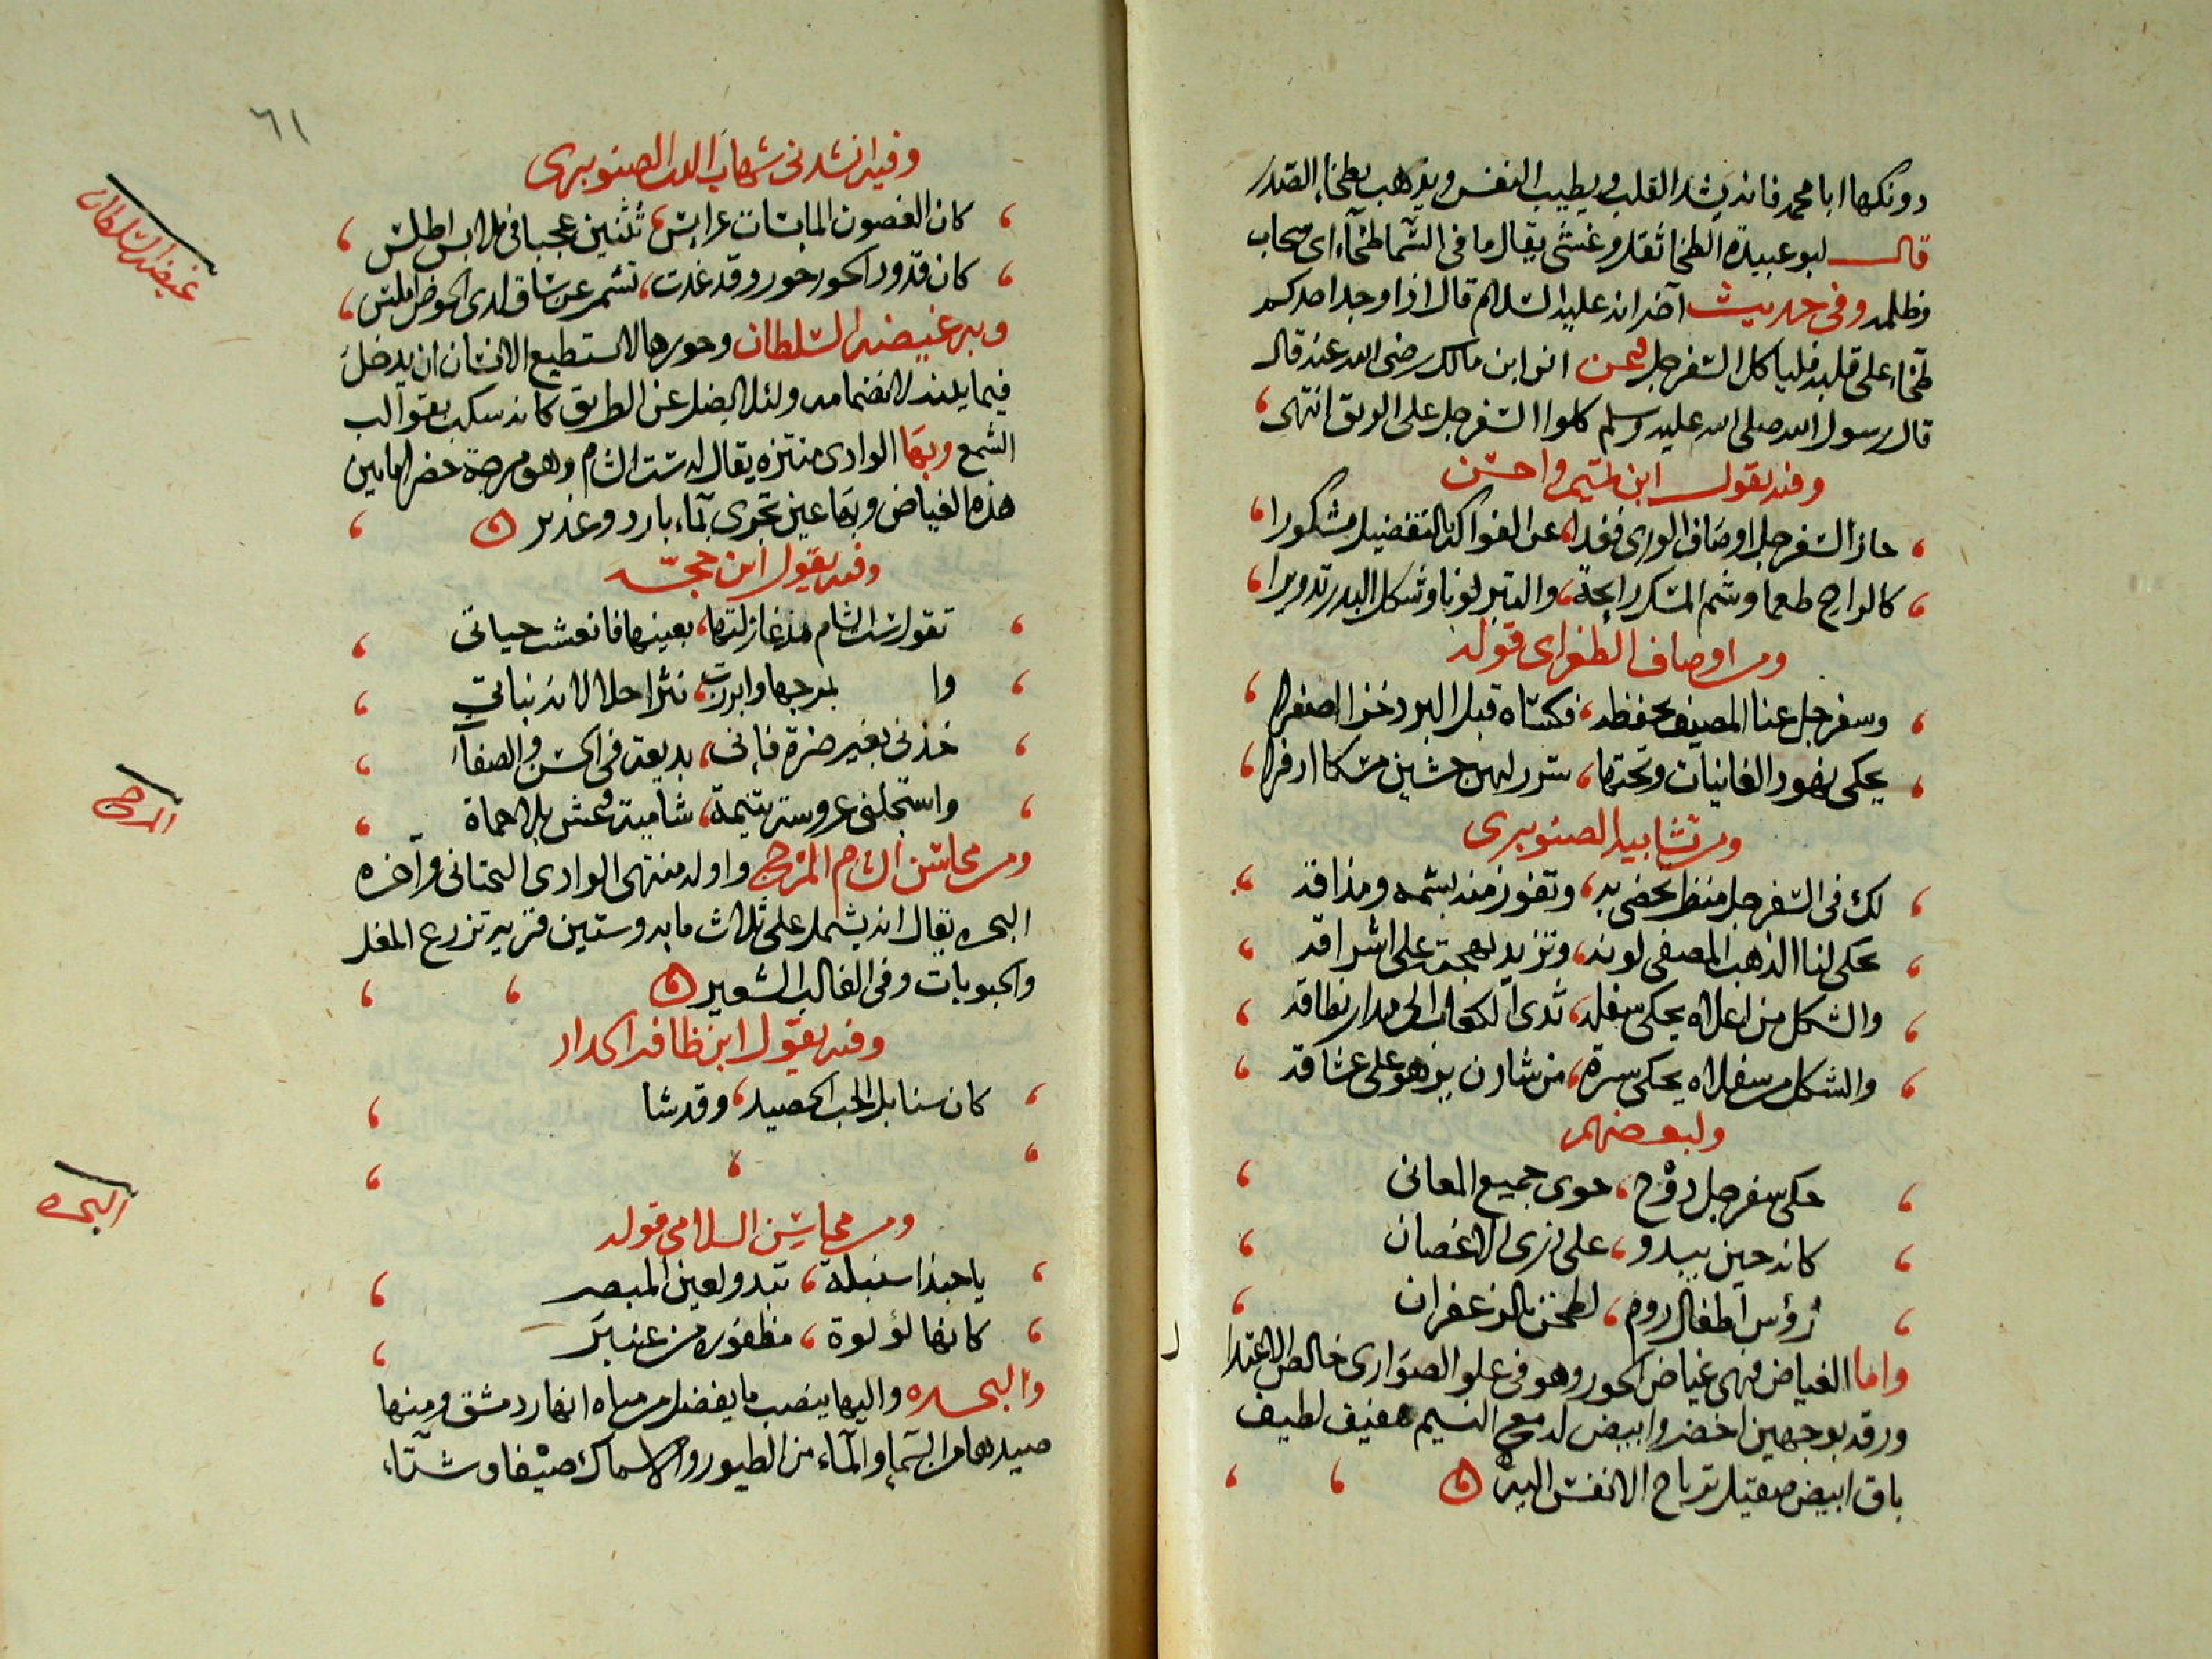 دونكها ابا محمد فانه يشد القلب ويطيب النفس ويذهب بطخاء الصدر
قال ابو عبيدة الطخا ثقل وغشى يقال ما فى السما طخآء اى سحاب
وظلمه وفى حديث آخر انه عليه السلام قال اذا وجد احدكم
طخاء على قلبه فلياكل السفرجل وعن انس ابن مالك رضى الله عنه قال
قال رسول الله صلى الله عليه وسلم كلوا السفرجل على الريق انتهى
وفيه يقول ابن تميم واحسن
حاز السفرجل اوصاف الورى فغدا، عن الفواكه بالتفضيل مشكورا
كالراح طعما وشم المسك رايحة، والتبر لونا وشكل البدر تدويرا
ومن اوصاف الطغراى قوله
وسفرجل عنا المصيف بحفظه، فكساه قبل البرد خزا اصفرا
يحكى نهود الغانيات وتحتها، سرر لهن حشين مسكا اذفرا
ومن تشابيه الصنوبرى
لك فى السفرجل منظر تحضى به، وتفوز منه بشمه ومذاقه
يحكى لنا الذهب المصفى لونه، وتزيد بهجته على اشراقه
والشكل من اعلاه يحكى سفله، ثدى الكعاب الى مدار نطاقه
والشكل من سفلاه يحكى سرة، من شادن يزهو على عشاقه
ولبعضهم
حكى سفرجل دوح، حوى جميع المعانى
كانه حين يبدو، على ذرى الاغصان
رؤس اطفال روم، لطخن بالزعفران
واما الغياض فهى غياض الحور وهو فى علو الصوارى خالص الاعتدا
ل
ورقه بوجهين اخضر وابيض له مع النسيم حفيف لطيف
باق ابيض صقيل ترتاح الانفس اليه
٦١
وفيه انشدنى شهاب الدين الصنوبرى
كان الغصون المابسات عرايس، تثنين عجبا فى ملابس اطلس
كان قدود الحور حور وقد غدت، تشمر عن ساق لدى الحوض املس
وبه غيضه السلطان وحورها لا يستطيع الانسان ان يدخل
فيما يليه لانضمامه ولئلا يضل عن الطريق كانه سكب بقوالب
الشمع وبها الوادى منتزه يقال له ست الشام وهو مرجة خضرا ما بين
هذه الغياض وبها عين تجرى بماء بارد وغدير
وفيه يقول ابن حجة
تقول ست الشام مذ غازلتها، بعينها فانعشت حياتى
وا بمرجها وابرزت، نثرا حلالا نه نباتى
خذنى بغير ضرة فإنى، بديعة فى الحسن والصفات
واستجلنى عروسة يتيمة، شامية وعش بلا حماة
ومن محاسن الشام المرج واوله منتهى الوادى التحتانى وآخره
البحره يقال انه يشمل على ثلاث مايه وستين قريه تزرع المغل
والحبوبات وفى الغالب الشعير
وفيه يقول ابن ظافر الحداد
كان سنابل الحب الحصيد، وقد شا
ومن محاسن السلامى قوله
يا حبذا سنبلة، تبدو لعين المبصر
كانها لؤلوة، مظفوره من عنبر
والبحره واليها ينصب ما يفضل من مياه انهار دمشق ومنها
صيدهما من السماء والمآء من الطيور والاسماك صيفا وشتآء
غيضه السلطان
المرج
البحره